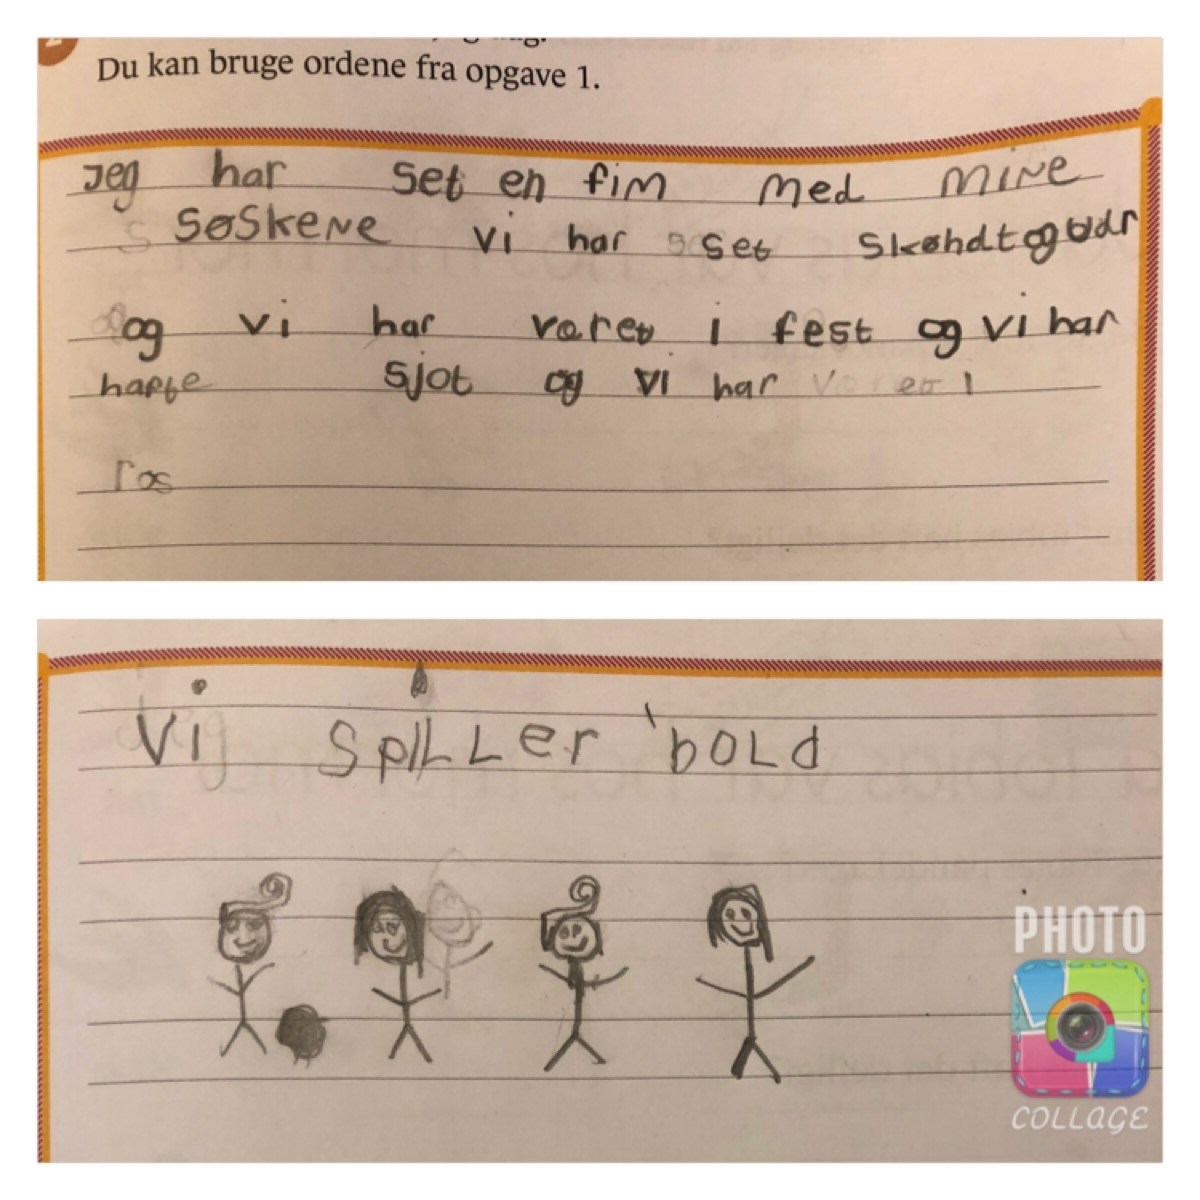 Du kan bruge ordene fra opgave 1.
Jeg har set en fim med mine
søskene vi har set skøhdt og
og vi har voret i fest og vi har
hafte sjot og vi har voret i
Tos
Vi spiller bold
PHOTO
COLLAGE